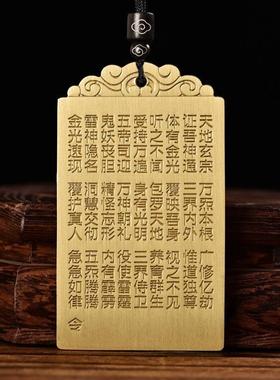 天地玄宗 万炁本根 广修亿劫
证吾神通 三界内外 惟道独尊
体有金光 覆映吾身 视之不见
听之不闻 包罗天地 养育群生
受持万遍 身有光明 三界侍卫
五帝司迎 万神朝礼 役使雷霆
鬼妖丧胆 精怪忘形 内有霹雳
雷神隐名 洞慧交彻 五炁腾腾
金光速现 覆护真人 急急如律
令